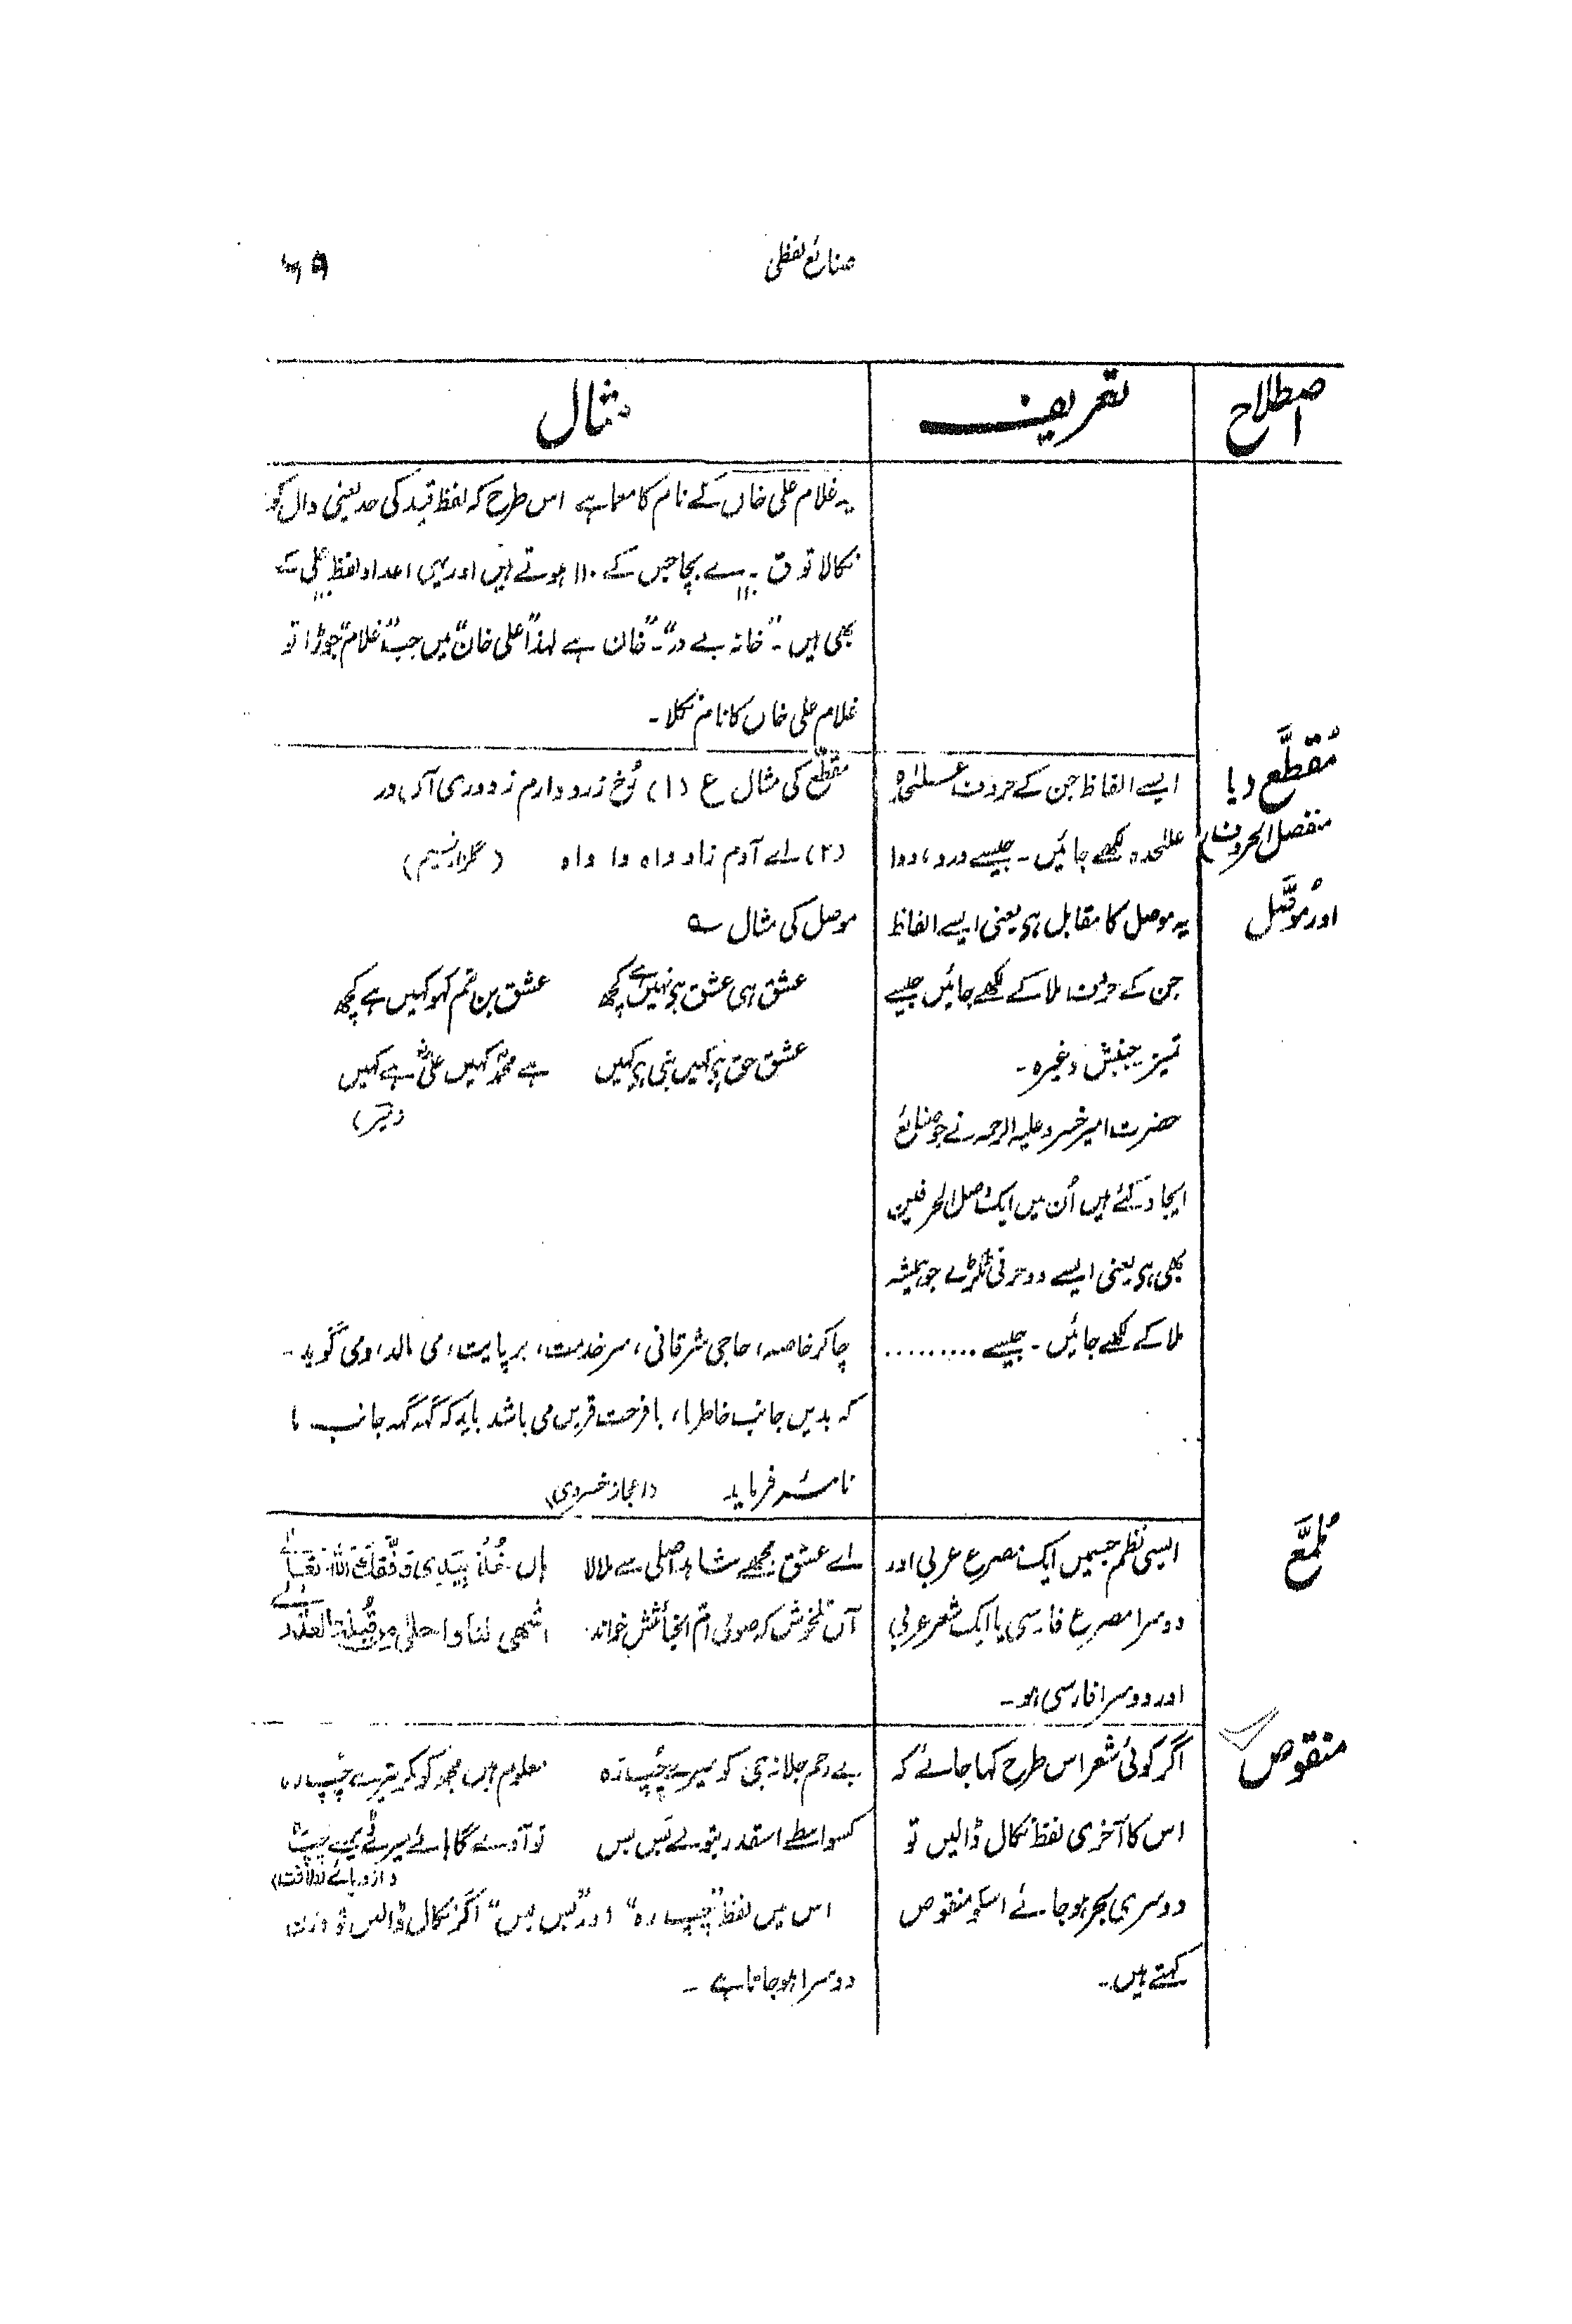 صنائع لفظی
اصطلاح
تعریف
مثال
یہ غلام علی خاں کے نام کا معما ہے اس طرح کہ لفظ قید کی حد یعنی دال کو
نکالا تو ق ۔ی سے بچا جس کے ۱۱۰ ہوتے ہیں اور یہی اعداد لفظ علی کے
۱۱۰ ۱۱۰
بھی ہیں ۔ "خانہ بے در" ۔ "خان ہے لہذا "علی خان" میں جب "غلام" جوڑا تو
غلام علی خاں کا نام نکلا ۔
مُقطَّع (یا
منفصل الحروف)
اور مُوصَّل
ایسے الفاظ جن کے حروف علیٰحدہ
علیٰحدہ لکھے جائیں ۔ جیسے درد، دوا
یہ موصل کا مقابل ہے یعنی ایسے الفاظ
جن کے حرف ملا کے لکھے جائیں جیسے
تمیز جنبش وغیرہ ۔
حضرت امیر خسرو علیہ الرحمہ نے جو صنائع
ایجاد کئے ہیں اُن میں ایک وصل الحرفین
بھی ہے یعنی ایسے دو حرفی ٹکڑے جو ہمیشہ
ملا کے لکھے جائیں ۔ جیسے .........
مقطّع کی مثال ع (۱) رُخ زرد دارم ز دوری آں در
(۲) اے آدم زاد واہ وا واہ (گلزار نسیم)
موصل کی مثال ؎
عشق ہی عشق ہے نہیں ہے کچھ عشق بن تم کہو کہیں ہے کچھ
عشق حق ہے کہیں نبی ہے کہیں ہے محمدؐ کہیں علیؓ ہے کہیں
(میر)
چاکر خاصہ، حاجی شرقانی، سر خدمت، بر پایت، می مالد، ومی گوید ۔
کہ بدیں جانب خاطرا، با فرحت قریں می باشد باید کہ گہ گہ جانب ما
نامہ فرماید (اعجاز خسروی)
مُلمَّع
ایسی نظم جسمیں ایک مصرع عربی اور
دوسرا مصرع فارسی یا ایک شعر عربی
اور دوسرا فارسی ہو ۔
اے عشق مجھے شاہد اصلی سے ملا لا ہاں خُذ بِیَدِی وَفَّقَکَ اللہ تعالےٰ
آں تلخوش کہ صوفی ام الخبائثش خواند اشھی لنا واحلی من قُبلۃ العذارا
منقوص
اگر کوئی شعر اس طرح کہا جائے کہ
اس کا آخری لفظ نکال ڈالیں تو
دوسری بحر ہو جائے اسکو منقوص
کہتے ہیں ۔
بے رحم جلا نہ جی کو میرے چُپ رہ معلوم ہیں مجھ کو مکر تیرے چُپ رہ
کسواسطے اسقدر بتولے بس بس تو آوے گا ہائے میرے
(از دریائے لطافت)
اس میں لفظ "چپ رہ" اور "بس بس" اگر نکال ڈالیں تو وزن
دوسرا ہو جاتا ہے ۔